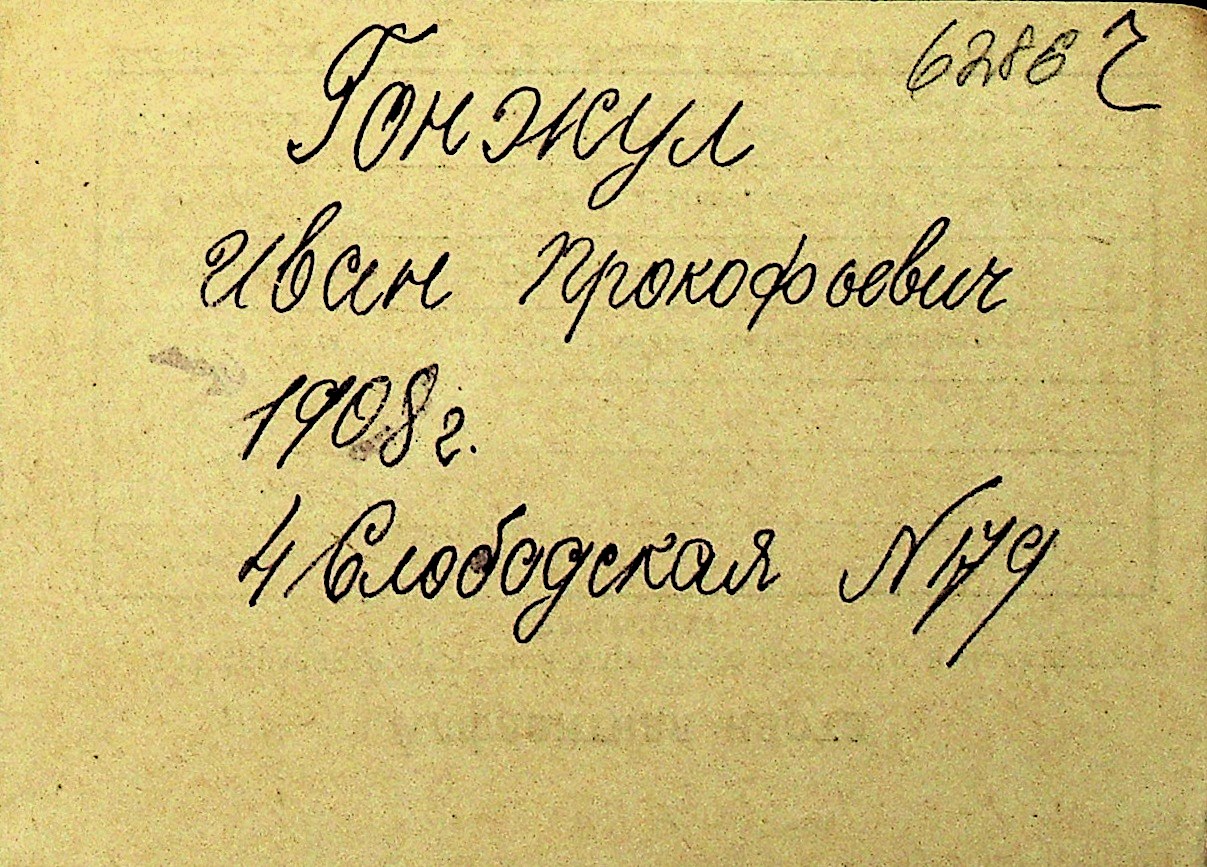 6286
Гонжул
Иван Прокофьевич
1908 г.
4 Слободская N 79